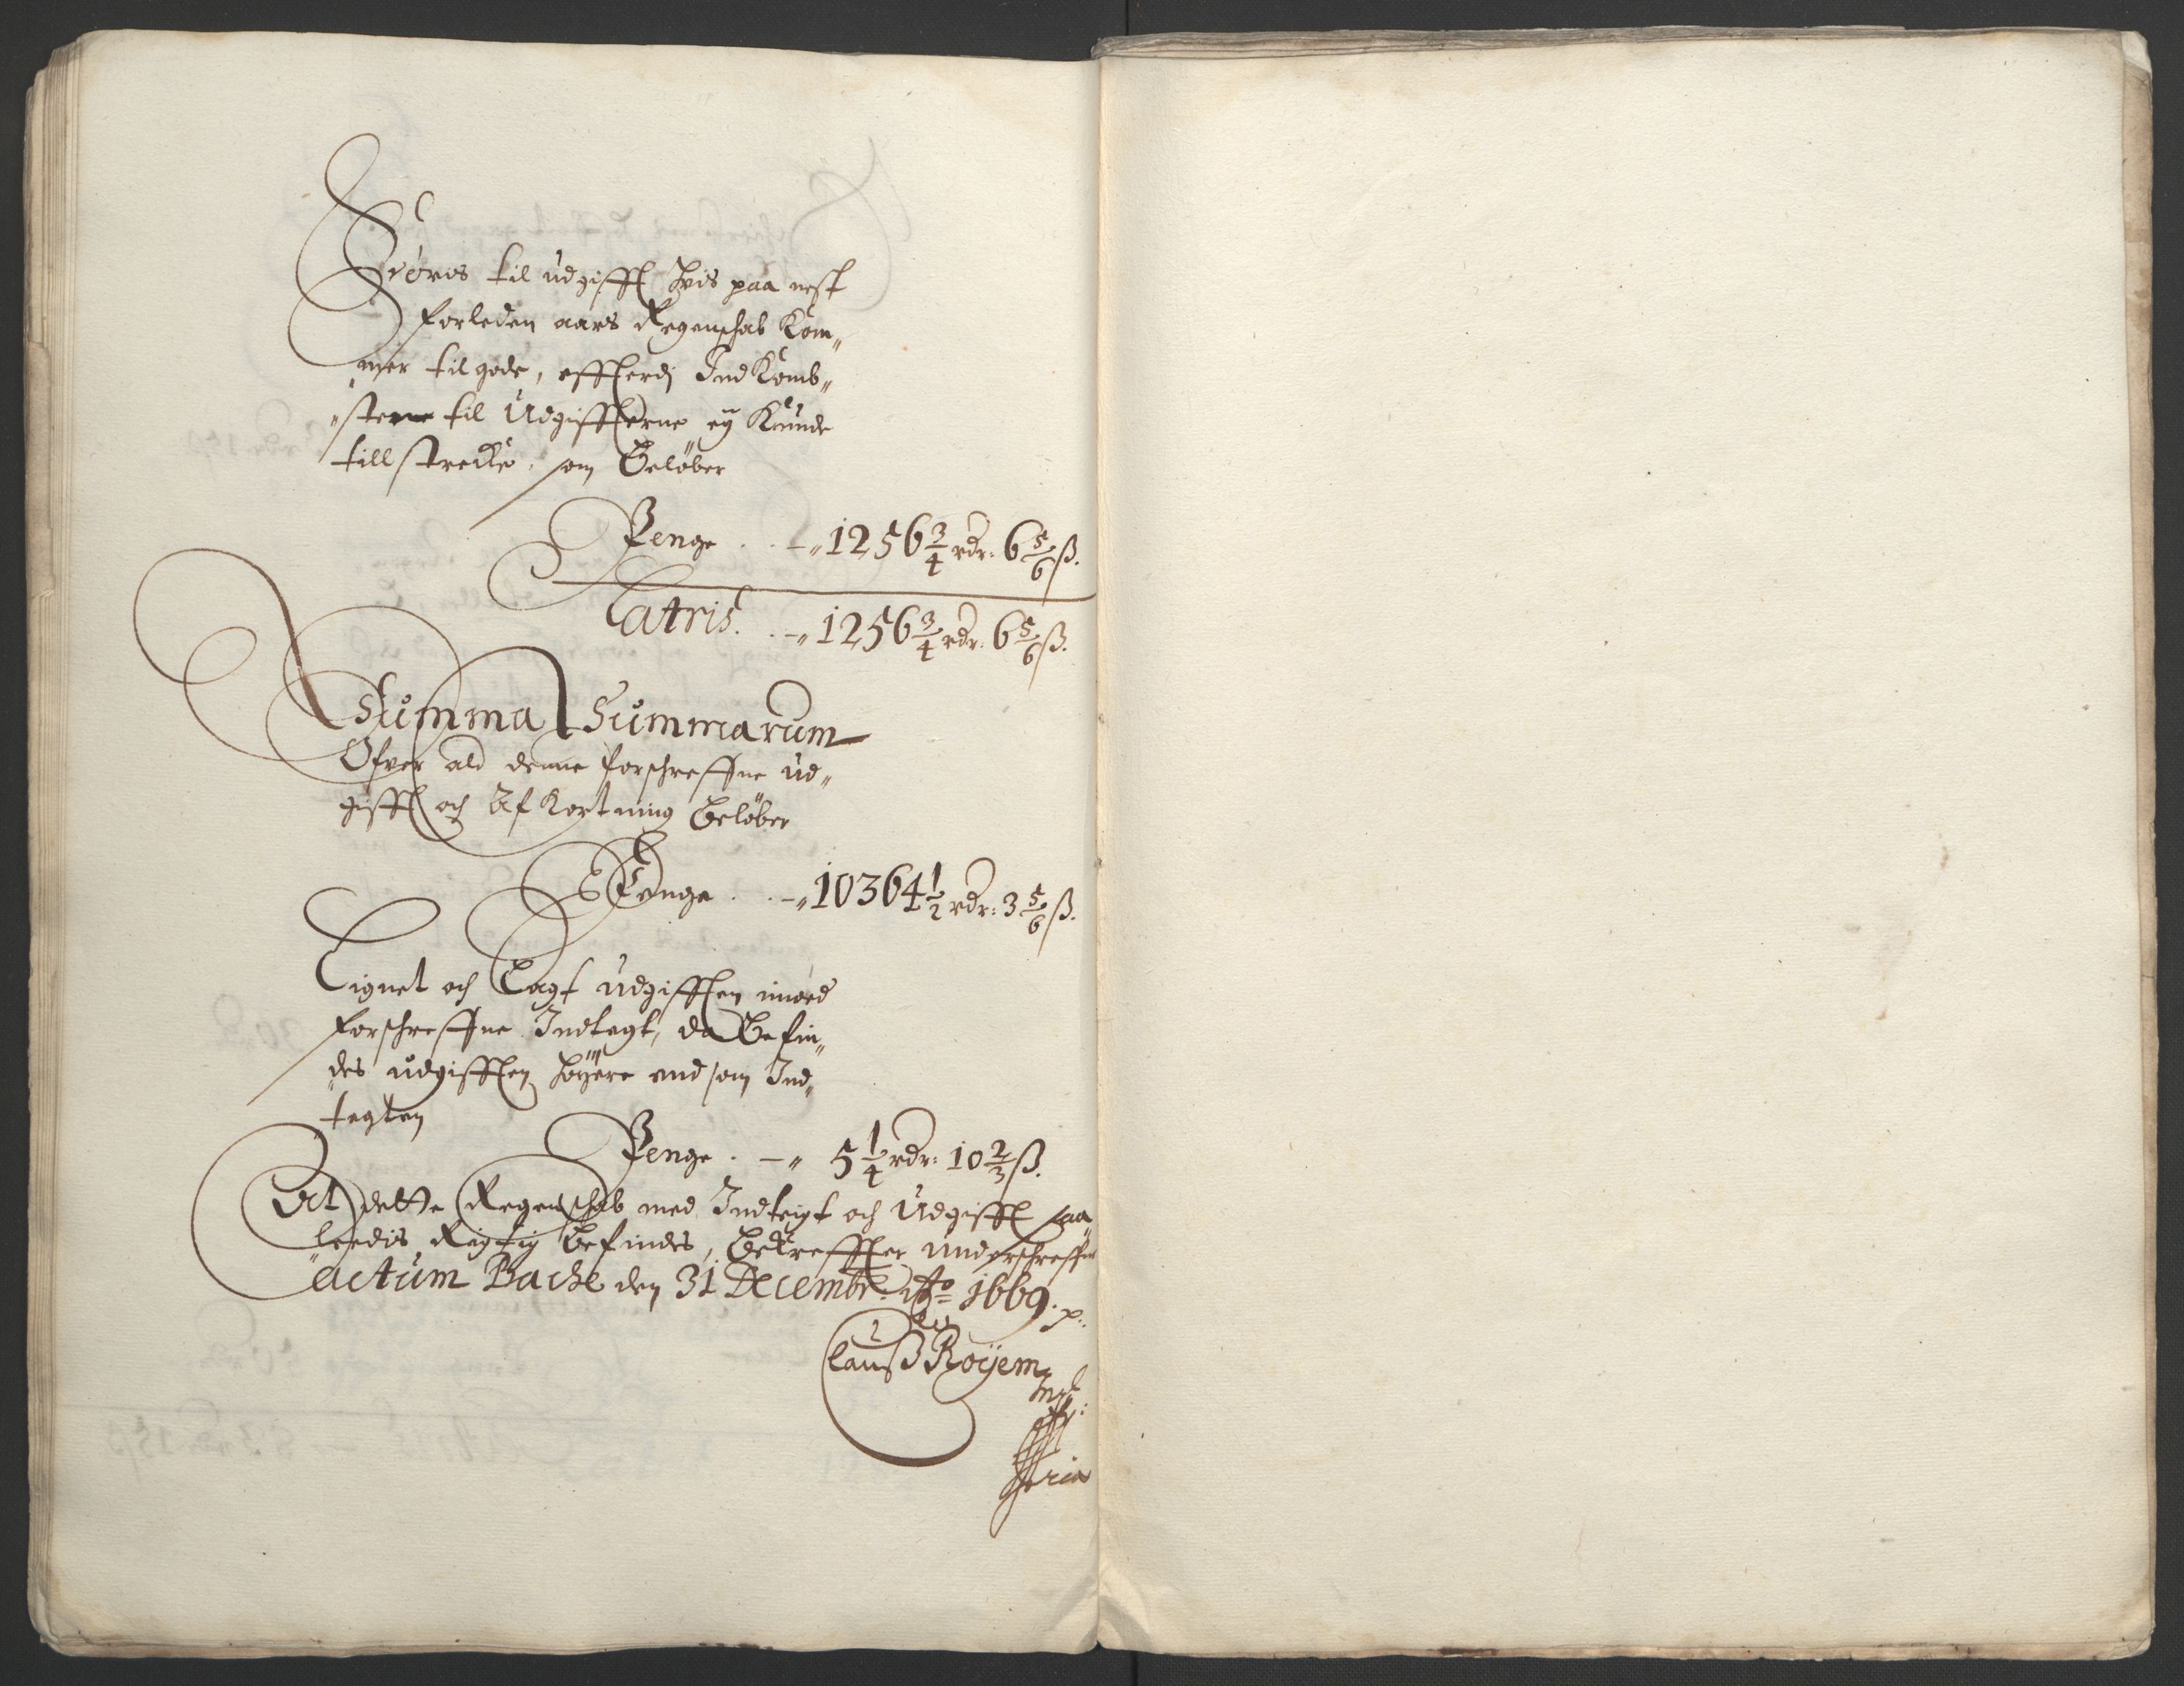 Føris til udgifft hvis paa nest
forleden aars Regenschab Kom„
mer til gode, effterdj IndKomb„
„sterne til Udgiffterne eÿ Kunde
tillstrecke, som Beløber
Penge . . –„ 1256 3/4 rdr: 6 5/6 ß.
Latris. . –„ 1256 3/4 rdr: 6 5/6 ß.
Summa Summarum
Ofver ald denne forschreffne ud„
gifft och AfKortning Beløber
Penge . . –„ 10364 1/2 rdr: 3 5/6 ß.
Lignet och Lagt udgifften imod
forschreffne Indtegt, da Befin„
des udgifften høÿere end som Ind„
tegten
Penge . –„ 5 1/4 rdr: 10 2/3 ß.
At dette Regenschab med Indteigt och Udgifft saa„
„ledis Rigtig Befindes, Bekreffter underschreffne
Actum Bache den 31 Decembr: Ao 1669. p:
Clauß Røÿem